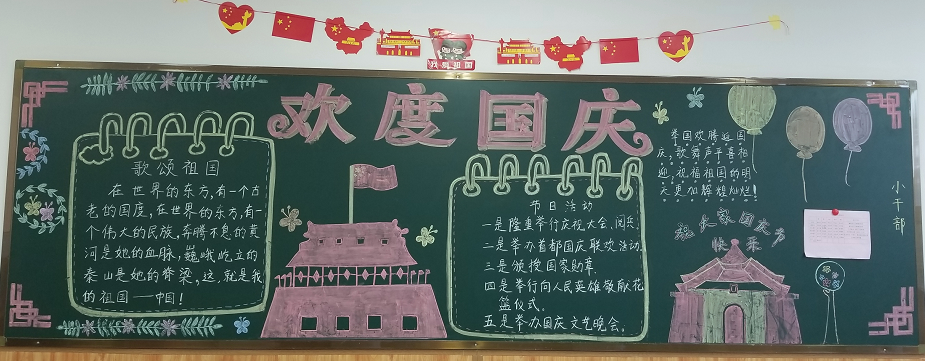 我爱祖国
欢度国庆
歌颂祖国
在世界的东方,有一个古
老的国度,在世界的东方,有一
个伟大的民族,奔腾不息的黄
河是她的血脉,巍峨屹立的
泰山是她的脊梁,这,就是我
的祖国——中国!
节日活动
一是隆重举行庆祝大会、阅兵
二是举办首都国庆联欢活动.
三是颁授国家勋章.
四是举行向人民英雄敬献花
篮仪式.
五是举办国庆文艺晚会.
举国欢腾迎国
庆,歌舞声平喜相
迎,祝福祖国的明
天更加辉煌灿烂!
祝大家国庆节
快乐
小干部